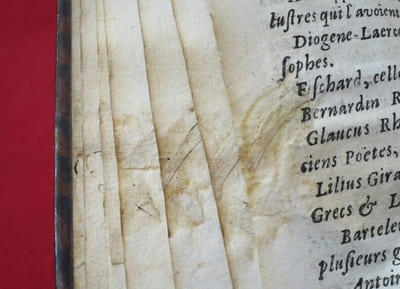 lustres qui l'avoient
Diogene-Laerc
sophes.
Fischard, celle
Bernardin R
Glaucus Rh
ciens Poëtes,
Lilius Gira
Grecs & L
Bartele
plusieurs g
Antoin